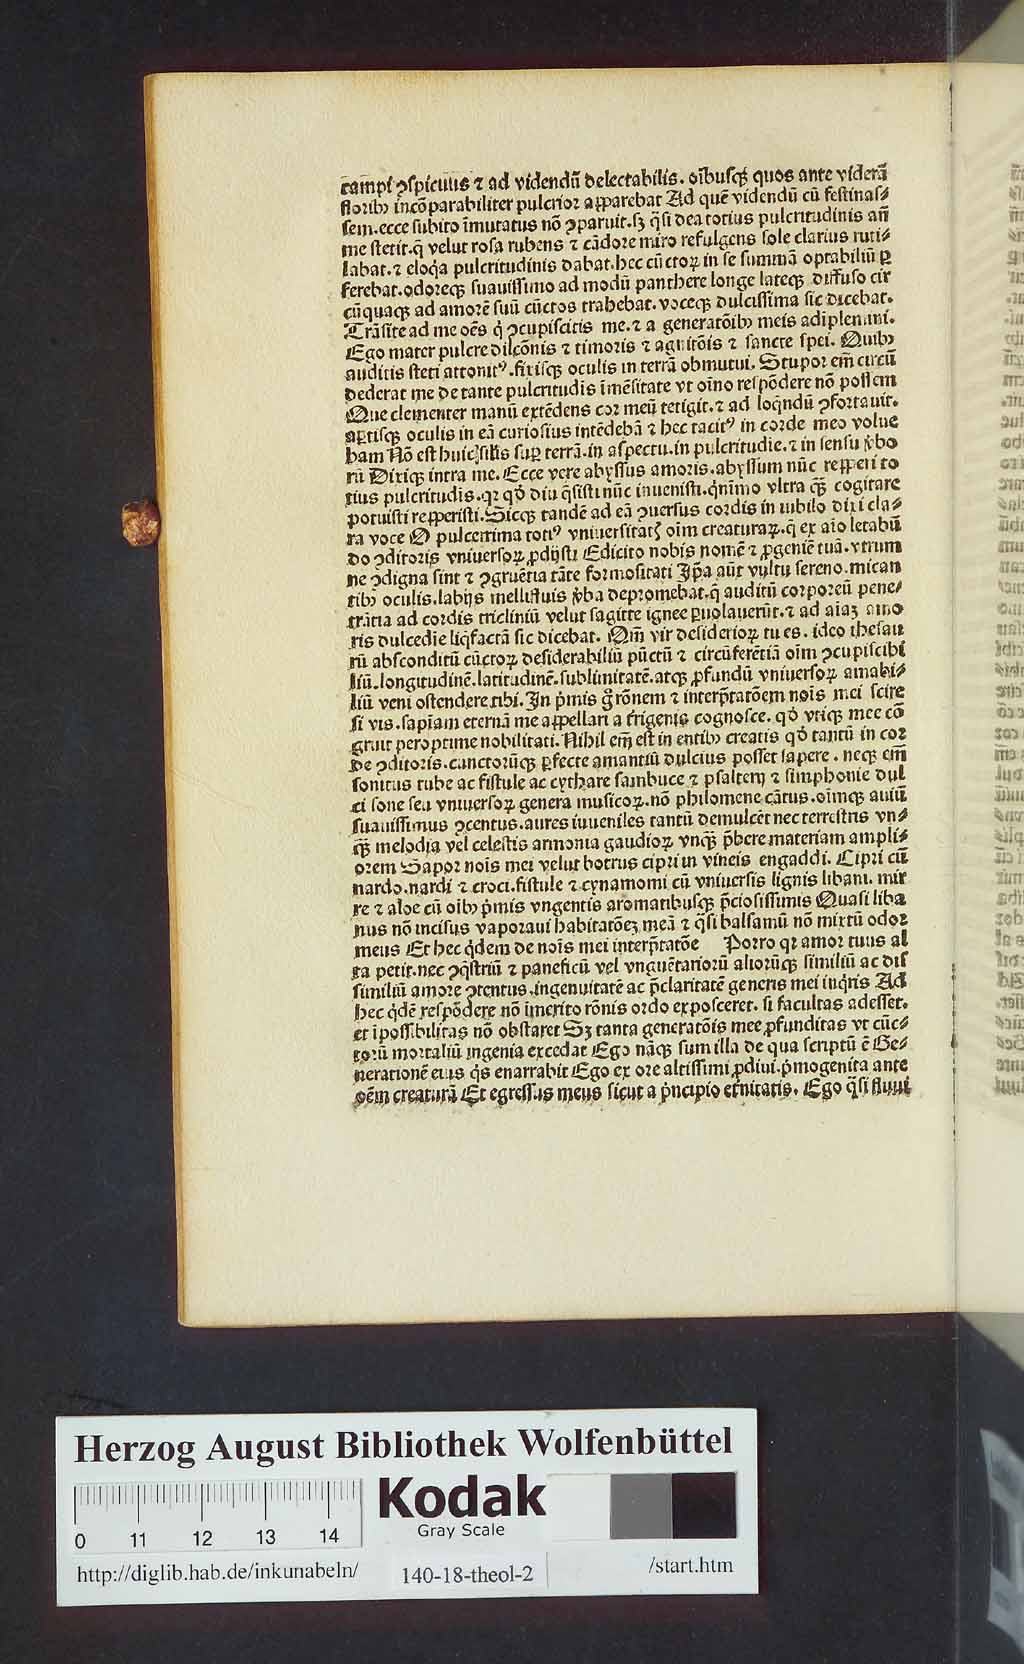 campi ꝯspicuus ⁊ ad videndū delectabilis. oībusqꝫ quos ante viderā
floribꝫ incōparabiliter pulcrior apparebat Ad quē videndū cū festinas⸗
sem. ecce subito īmutatus nō ꝯparuit. sꝫ q̄si dea totius pulcritudinis añ
me stetit. q̄ velut rosa rubens ⁊ cādore miro refulgens sole clarius ruti⸗
labat. ⁊ eloq̄a pulcritudinis dabat. hec cūctoꝝ in se summā optabiliū ꝑ
ferebat. odoreqꝫ suauissimo ad modū panthere longe lateqꝫ diffuso cir
cūquaqꝫ ad amorē suū cūctos trahebat. voceqꝫ dulcissima sic dicebat.
Trāsite ad me oēs q̇ ꝯcupiscitis me. ⁊ a generatōibꝫ meis adiplemini.
Ego mater pulcre dilcōnis ⁊ timoris ⁊ agnitōis ⁊ sancte spei. Quibꝫ
auditis steti attonitꝰ. fixisqꝫ oculis in terrā obmutui. Stupor em̄ circū
dederat me de tante pulcritudis īmēsitate vt oīno respōdere nō possem
Que clementer manū extēdens cor meū tetigit. ⁊ ad loq̄ndū ꝯfortauit.
aꝑtisqꝫ oculis in eā curiosius intēdebā ⁊ hec tacitꝰ in corde meo volue
bam Nō est huic silīs suꝑ terrā. in aspectu. in pulcritudie. ⁊ in sensu v̇bo
rū Dixiqꝫ intra me. Ecce vere abyssus amoris. abyssum nūc repperi to
tius pulcritudis. qꝛ qḋ diu q̄sisti nūc inuenisti. q̇nīmo vltra qꝫ̄ cogitare
potuisti repperisti. Sicqꝫ tandē ad eā ꝯuersus cordis in iubilo dixi cla⸗
ra voce O pulcerrima totiꝰ vniuersitatꝭ oīm creaturaꝝ. q̄ ex aīo letabū
do ꝯditoris vniuersoꝝ ꝓdijsti Edicito nobis nomē ⁊ ꝓgeniē tuā. vtrum
ne ꝯdigna sint ⁊ ꝯgruētia tāte formositati Ip̄a aūt vultu sereno. mican
tibꝫ oculis. labijs mellifluis v̇ba depromebat. q̄ auditū corporeū pene⸗
trātia ad cordis tricliniū velut sagitte ignee ꝑuolauerūt. ⁊ ad aīaꝫ amo
ris dulcedie liq̄factā sic dicebat. Qm̄ vir desiderioꝝ tu es. ideo thesau
rū absconditū cūctoꝝ desiderabiliū pūctū ⁊ circūferētiā oīm ꝯcupiscibi
liū. longitudinē. latitudinē. sublimitatē. atqꝫ ꝓfundū vniuersoꝝ amabi⸗
liū veni ostendere tibi. In ṗmis g̊ rōnem ⁊ interp̄tatōem noīs mei scire
si vis. sapīam eternā me appellari a frigenis cognosce. qḋ vtiqꝫ mee cō
gruit peroptime nobilitati. Nihil em̄ est in entibꝫ creatis qḋ tantū in cor
de ꝯditoris. cunctorūqꝫ ꝑfecte amantiū dulcius posset sapere. neqꝫ em̄
sonitus tube ac fistule ac cythare sambuce ⁊ psalterij ⁊ simphonie dul
ci sone seu vniuersoꝝ genera musicoꝝ. nō philomene cātus. oīmqꝫ auiū
suauissimus ꝯcentus. aures iuueniles tantū demulcēt nec terrestris vn⸗
qꝫ̄ melodia vel celestis armonia gaudioꝝ vnqꝫ̄ p̄bere materiam ampli⸗
orem Sapor noīs mei velut botrus cipri in vineis engaddi. Cipri cū
nardo. nardi ⁊ croci. fistule ⁊ cynamomi cū vniuersis lignis libani. mir
re ⁊ aloe cū oībꝫ ṗmis vngentis aromatibusqꝫ p̄ciosissimis Quasi liba
nus nō incisus vaporaui habitatōeꝫ meā ⁊ q̄si balsamū nō mixtū odor
meus Et hec q̇dem de noīs mei interp̄tatōe Porro qꝛ amor tuus al
ta petit. nec ꝯq̄striū ⁊ paneficū vel vnguētariorū aliorūqꝫ similiū ac dis
similiū amore ꝯtentus. ingenuitatē ac p̄claritatē generis mei inq̇ris Ad
hec q̇dē respōdere nō īmerito rōnis ordo exposceret. si facultas adesset.
et īpossibilitas nō obstaret Sꝫ tanta generatōis mee ꝓfunditas vt cūc⸗
torū mortaliū ingenia excedat Ego nāqꝫ sum illa de qua scriptū ē Ge⸗
nerationē eius q̇s enarrabit Ego ex ore altissimi ꝓdiui. ṗmogenita ante
oēm creaturā Et egressus meus sicut a ṗncipio eṫnitatis. Ego q̄si fluui
Herzog August Bibliothek Wolfenbüttel
0 11 12 13 14
Kodak
Gray Scale
http://diglib.hab.de/inkunabeln/ 140-18-theol-2 /start.htm